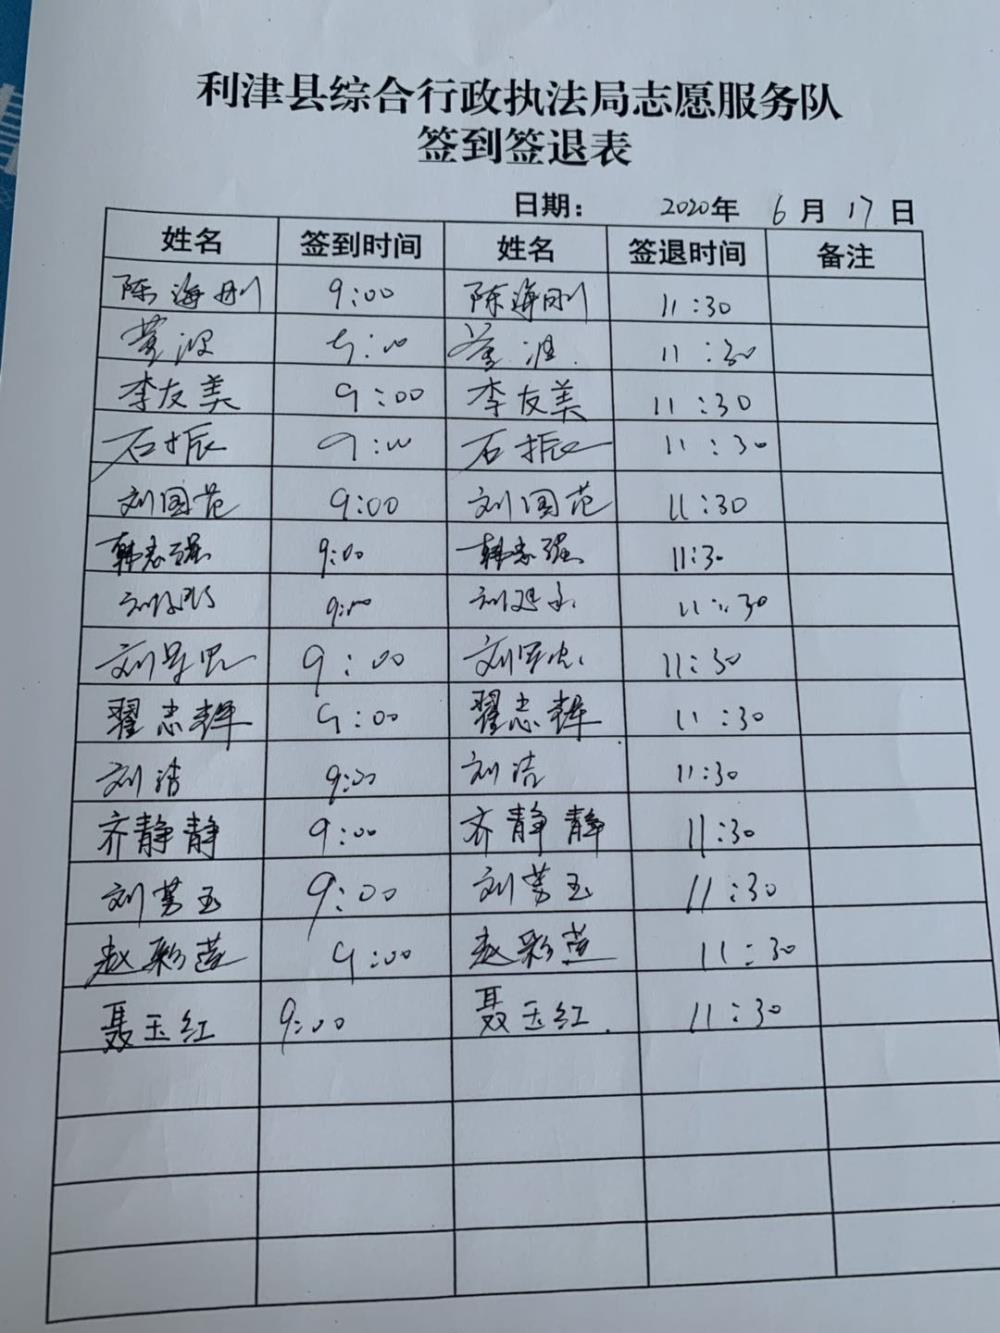 利津县综合行政执法局志愿服务队
签到签退表
日期: 2020年 6月 17日
姓名 签到时间 姓名 签退时间 备注
陈海刚 9:00 陈海刚 11:30
9:00 11:30
李友美 9:00 李友美 11:30
石振 9:00 石振 11:30
刘国范 9:00 刘国范 11:30
韩志强 9:00 韩志强 11:30
刘 9:00 刘 11:30
刘军忠 9:00 刘军忠 11:30
翟志辉 9:00 翟志辉 11:30
刘洁 9:00 刘洁 11:30
齐静静 9:00 齐静静 11:30
刘芳玉 9:00 刘芳玉 11:30
赵彩莲 9:00 赵彩莲 11:30
聂玉红 9:00 聂玉红 11:30